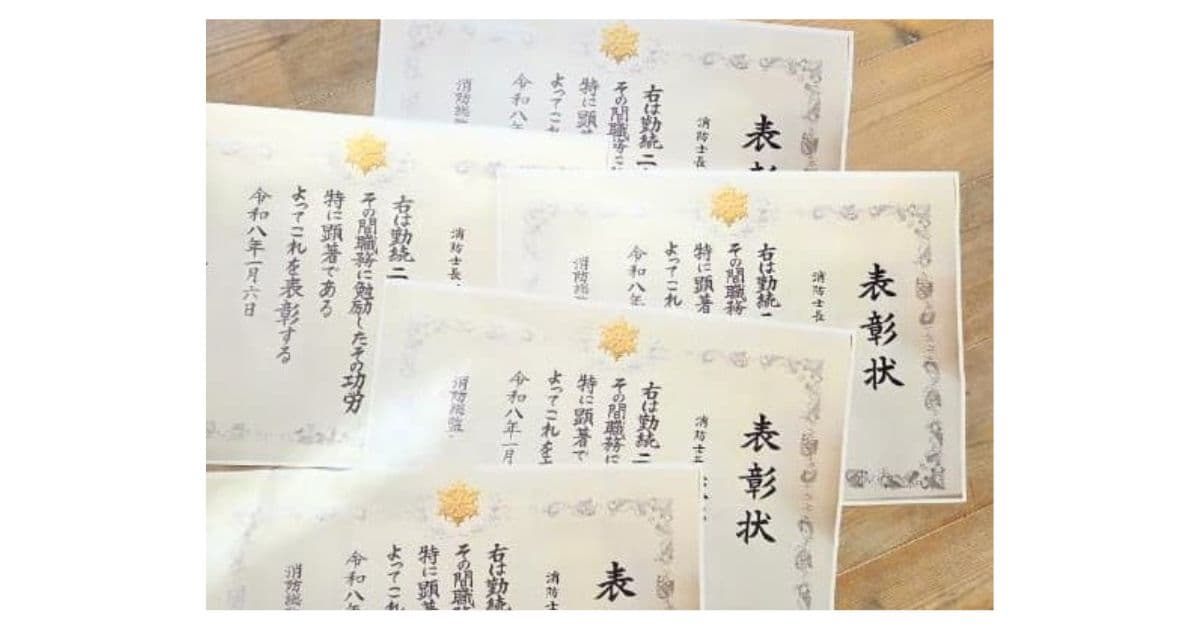 表
消防士長
右は勤続二
その間職務に
特に顕著
よってこれ
令和八年
消防総
消防士長
右は勤続二
その間職務に勉励したその功労
特に顕著である
よってこれを表彰する
令和八年一月六日
表彰状
消防士長
右は勤続
その間職務
特に顕著
よってこれ
令和八年
消防総
表彰状
消防士長
右は勤続二
その間職務に
特に顕著で
よってこれを
令和八年一月
消防総監
表
消防士
右は勤続
その間職務
特に顕
よってこれ
令和八年
消防総